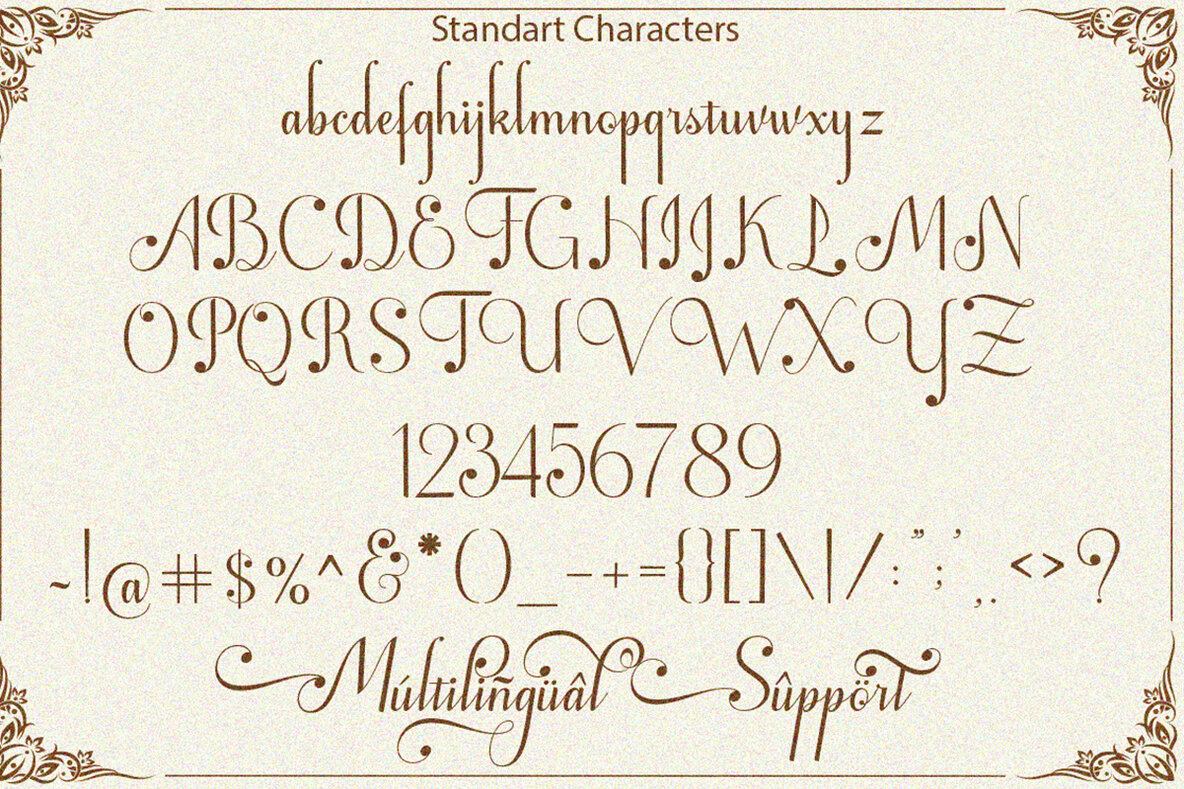 Standart Characters
abcdefghijklmnopqrstuvwxyz
ABCDEFGHIJKLMN
OPQRSTUVWXYZ
123456789
~!@#$%^&*()_-+={}[]\|/:”;’,.<>?
Múltiliñgüâl Sûppört